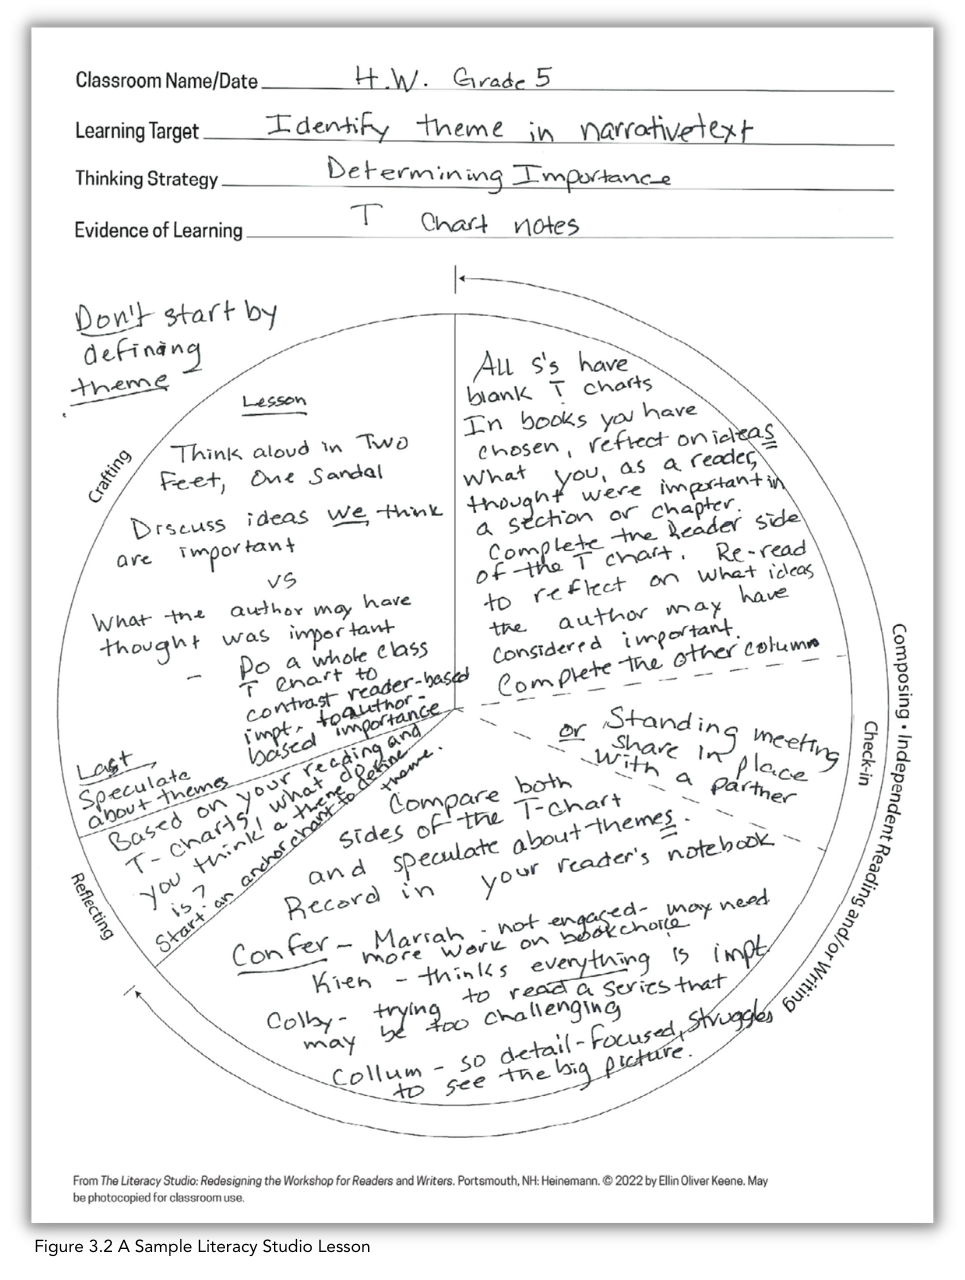 Classroom Name/Date H.W. Grade 5
Learning Target Identify theme in narrative text
Thinking Strategy Determining Importance
Evidence of Learning T Chart notes
Don't start by
defining
theme
Crafting
Lesson
Think aloud in Two
Feet, One Sandal
Discuss ideas we think
are important
vs
What the author may have
thought was important
- Do a whole class
T chart to
contrast reader-based
impt. to author-
based importance
Last,
Speculate
about themes
All s's have
blank T charts
In books you have
chosen, reflect on ideas
what you, as a reader,
thought were important in
a section or chapter.
Complete the Reader side
of the T chart. Re-read
to reflect on what ideas
the author may have
considered important.
Complete the other column
or Standing meeting
share in place
with a partner
Check-in
Composing • Independent Reading and/or Writing
Compare both
sides of the T-Chart
and speculate about themes.
Record in your reader's notebook
Confer - Mariah - not engaged - may need
more work on book choice
Kien - thinks everything is impt.
Colby - trying to read a series that
may be too challenging
Collum - so detail-focused, struggles
to see the big picture.
Reflecting
Based on your reading and
T-charts, what do
you think a theme
is?
Start an anchor chart to define
theme.
From The Literacy Studio: Redesigning the Workshop for Readers and Writers. Portsmouth, NH: Heinemann. © 2022 by Ellin Oliver Keene. May
be photocopied for classroom use.
Figure 3.2 A Sample Literacy Studio Lesson